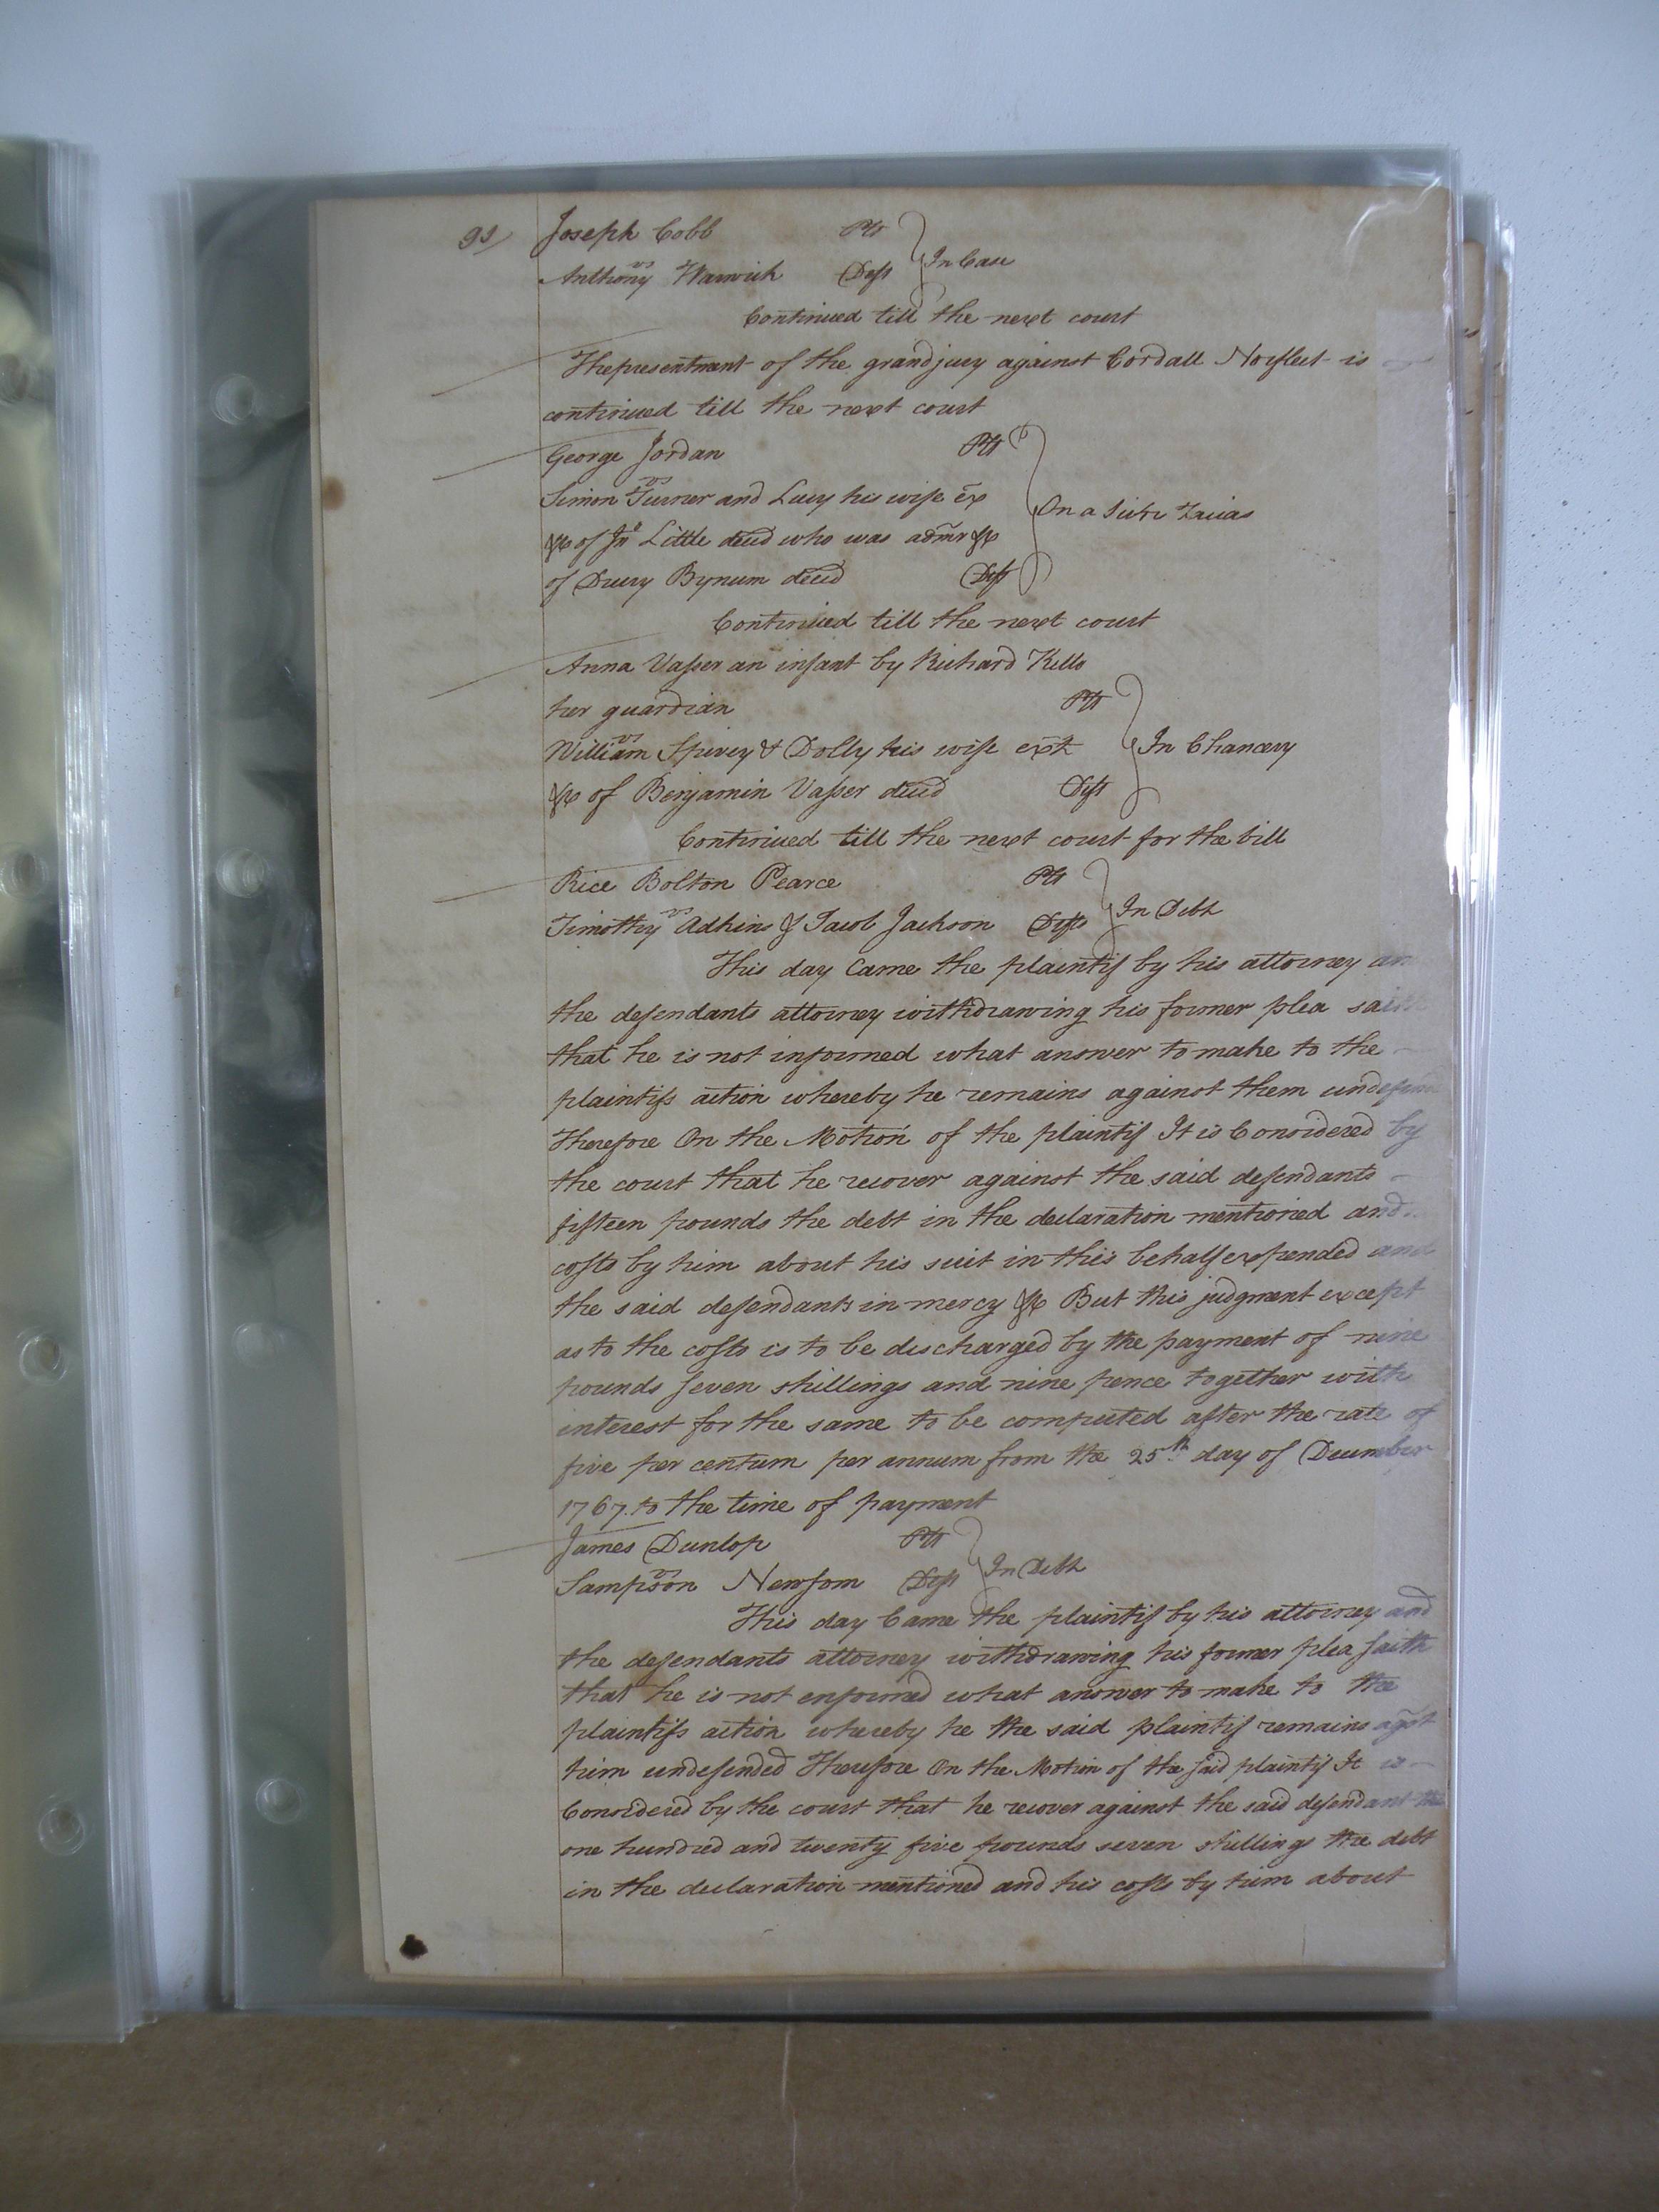 91/ Joseph Cobb Plt
vs
Anthony Warwick Deft } In Case
Continued till the next court
The presentment of the grandjury against Cordall Norfleet is
continued till the next court
George Jordan Plt
vs
Simon Turner and Lucy his wife ex
&c of Jno Little decd who was admr &c } On a Scire Facias
of Drury Bynum decd Deft
Continued till the next court
Anna Vasser an infant by Richard Kello
her guardian Plt
vs
William Spivey & Dolly his wife extx } In Chancery
&c of Benjamin Vasser decd Deft
Continued till the next court for the bill
Rice Bolton Pearce Plt
vs
Timothy Adkins & Jacob Jackson Defts } In Debt
This day Came the plaintif by his attorney an
the defendants attorney withdrawing his former plea saith
that he is not informed what answer to make to the
plaintifs action whereby he remains against them undefend
Therefore On the Motion of the plaintif It is Considered by
the court that he recover against the said defendants
fifteen pounds the debt in the declaration mentioned and
costs by him about his suit in this behalf expended and
the said defendants in mercy &c But this judgment except
as to the costs is to be discharged by the payment of nine
pounds seven shillings and nine pence together with
interest for the same to be computed after the rate of
five per centum per annum from the 25th day of December
1767. to the time of payment
James Dunlop Plt
vs
Sampson Newsom Deft } In Debt
This day Came the plaintif by his attorney and
the defendants attorney withdrawing his former plea saith
that he is not informed what answer to make to the
plaintifs action whereby he the said plaintif remains agst
him undefended Therefore On the Motion of the said plaintif It is
Considered by the court that he recover against the said defendant the
one hundred and twenty five pounds seven shillings the debt
in the declaration mentioned and his costs by him about